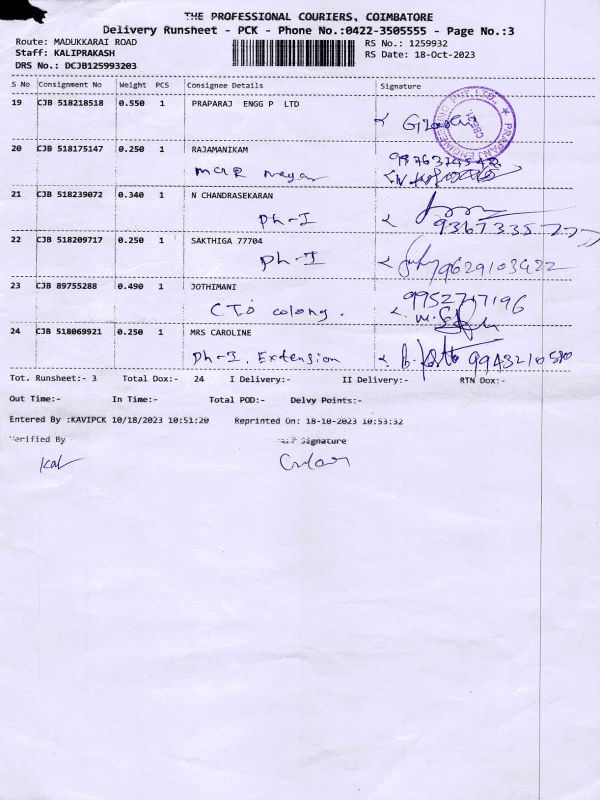 THE PROFESSIONAL COURIERS, COIMBATORE
Delivery Runsheet - PCK - Phone No.:0422-3505555 - Page No.:3
Route: MADUKKARAI ROAD
RS No.: 1259932
Staff: KALIPRAKASH
RS Date: 18-Oct-2023
DRS No.: DCJB125993203
S No Consignment No Weight PCS Consignee Details Signature
19 CJB 518218518 0.550 1 PRAPARAJ ENGG P LTD
20 CJB 518175147 0.250 1 RAJAMANIKAM
MGR Nagar
21 CJB 518239072 0.340 1 N CHANDRASEKARAN
Ph-I
22 CJB 518209717 0.250 1 SAKTHIGA 77704
Ph-I 9629103922
23 CJB 89755288 0.490 1 JOTHIMANI
CTO colony. 9952717196
24 CJB 518069921 0.250 1 MRS CAROLINE
Ph-I. Extension
Tot. Runsheet:- 3 Total Dox:- 24 I Delivery:- II Delivery:- RTN Dox:-
Out Time:- In Time:- Total POD:- Delvy Points:-
Entered By :KAVIPCK 10/18/2023 10:51:20 Reprinted On: 18-10-2023 10:53:32
Verified By Signature